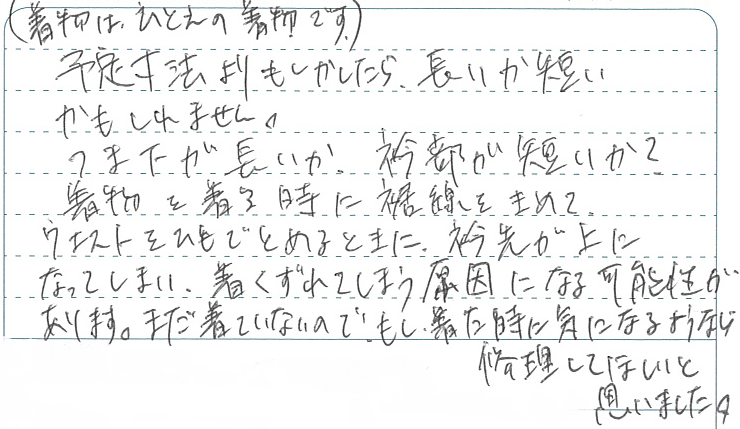 (着物は、ひとえの着物です。)
予定寸法よりもしかしたら、長いか短い
かもしれません。
つまたが長いか、衿部が短いか?
着物を着る時に裾線をきめて、
ウエストをひもでとめるときに、衿先が上に
なってしまい、着くずれてしまう原因になる可能性が
あります。まだ着ていないので、もし、着た時に気になるようなら
修理してほしいと
思いました。